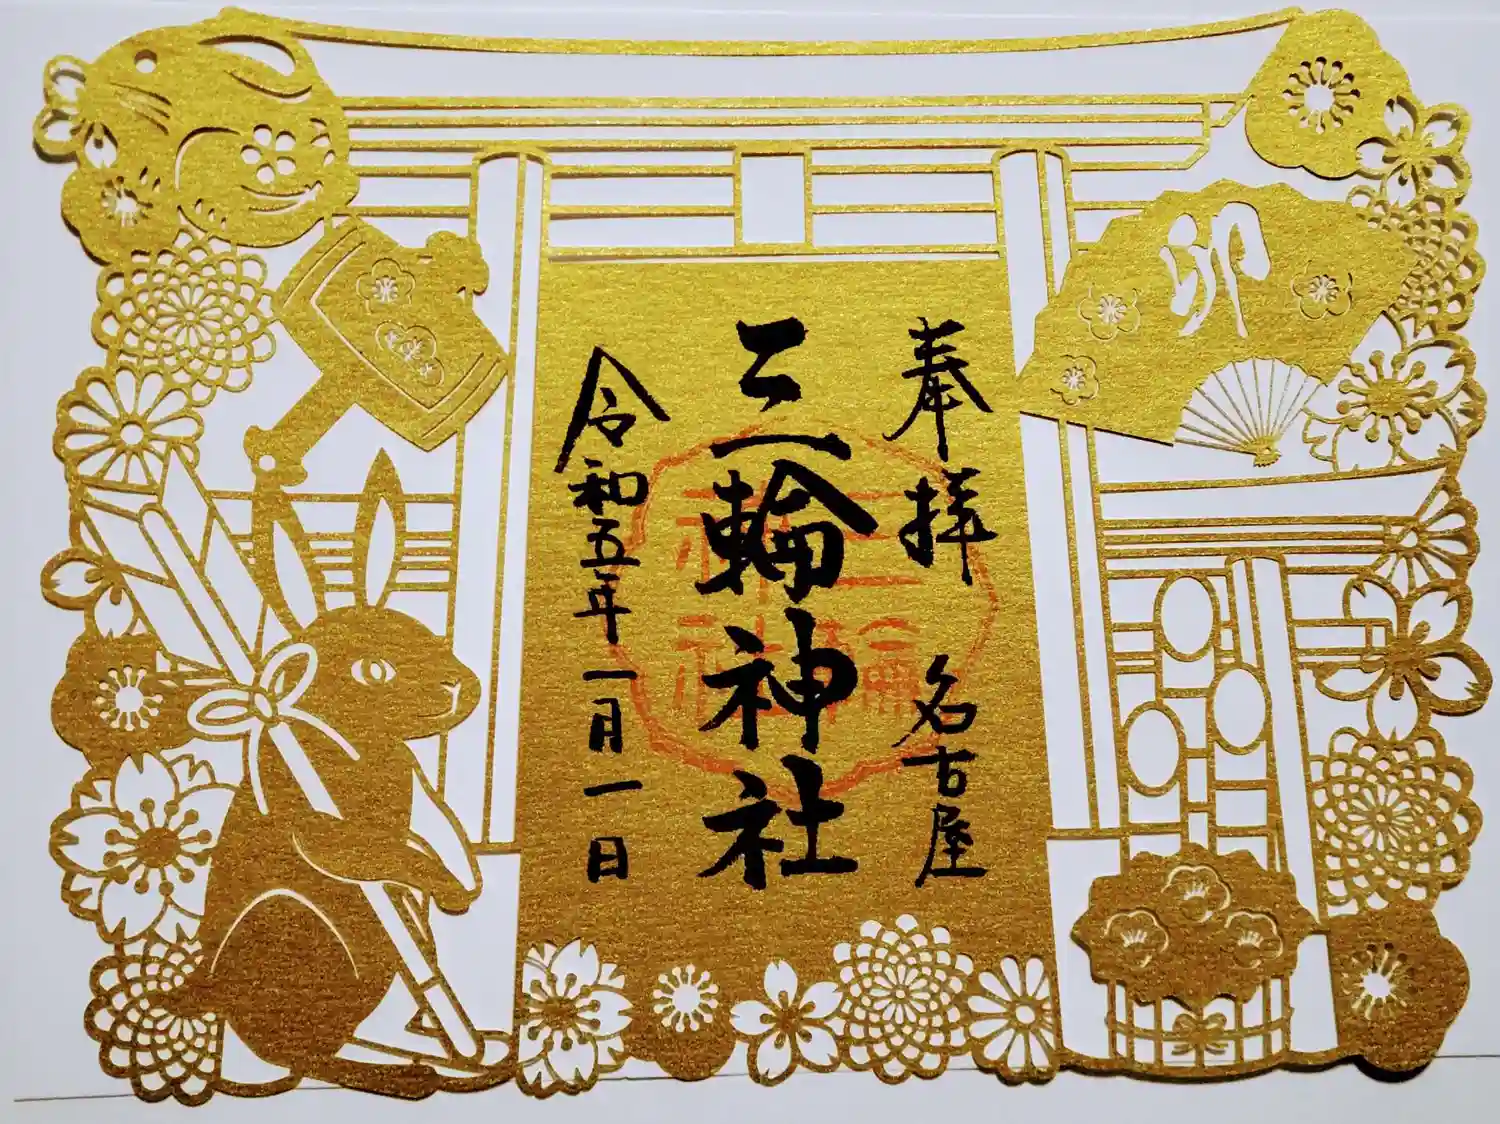 奉拝 名古屋
三輪神社
令和五年一月一日
卯
三輪
神社